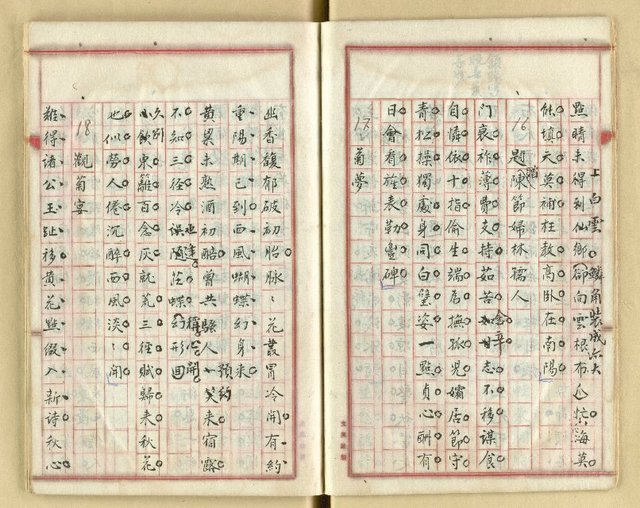 點睛未得到仙鄉卻向雲根布𠃔忙海莫
上白雲鱗角裝成
能填天莫補枉教高臥在南陽
16 題陳節婦林孺人
門衰祚薄費支持茹苦甘志不移謀食
含辛
自憐依十指偷生端為撫孤兒孀居節守
青松操獨處身同白璧姿一點貞心酬有
日會看旌表勒豐碑
17 菊夢
幽香馥郁破初胎脉脉花叢冒冷開有約
重陽期已到西風蝴蝶幻身來
黃粱未熟酒初醅曾共騷人一笑來宿露
預約
不知三徑冷隨莊蝶幻形回
小飲東籬百念灰就荒三徑賦歸來秋花
也似勞人倦沉醉西風淡淡開
18 觀菊宴
難得諸公玉趾移黃花點綴入新詩秋心